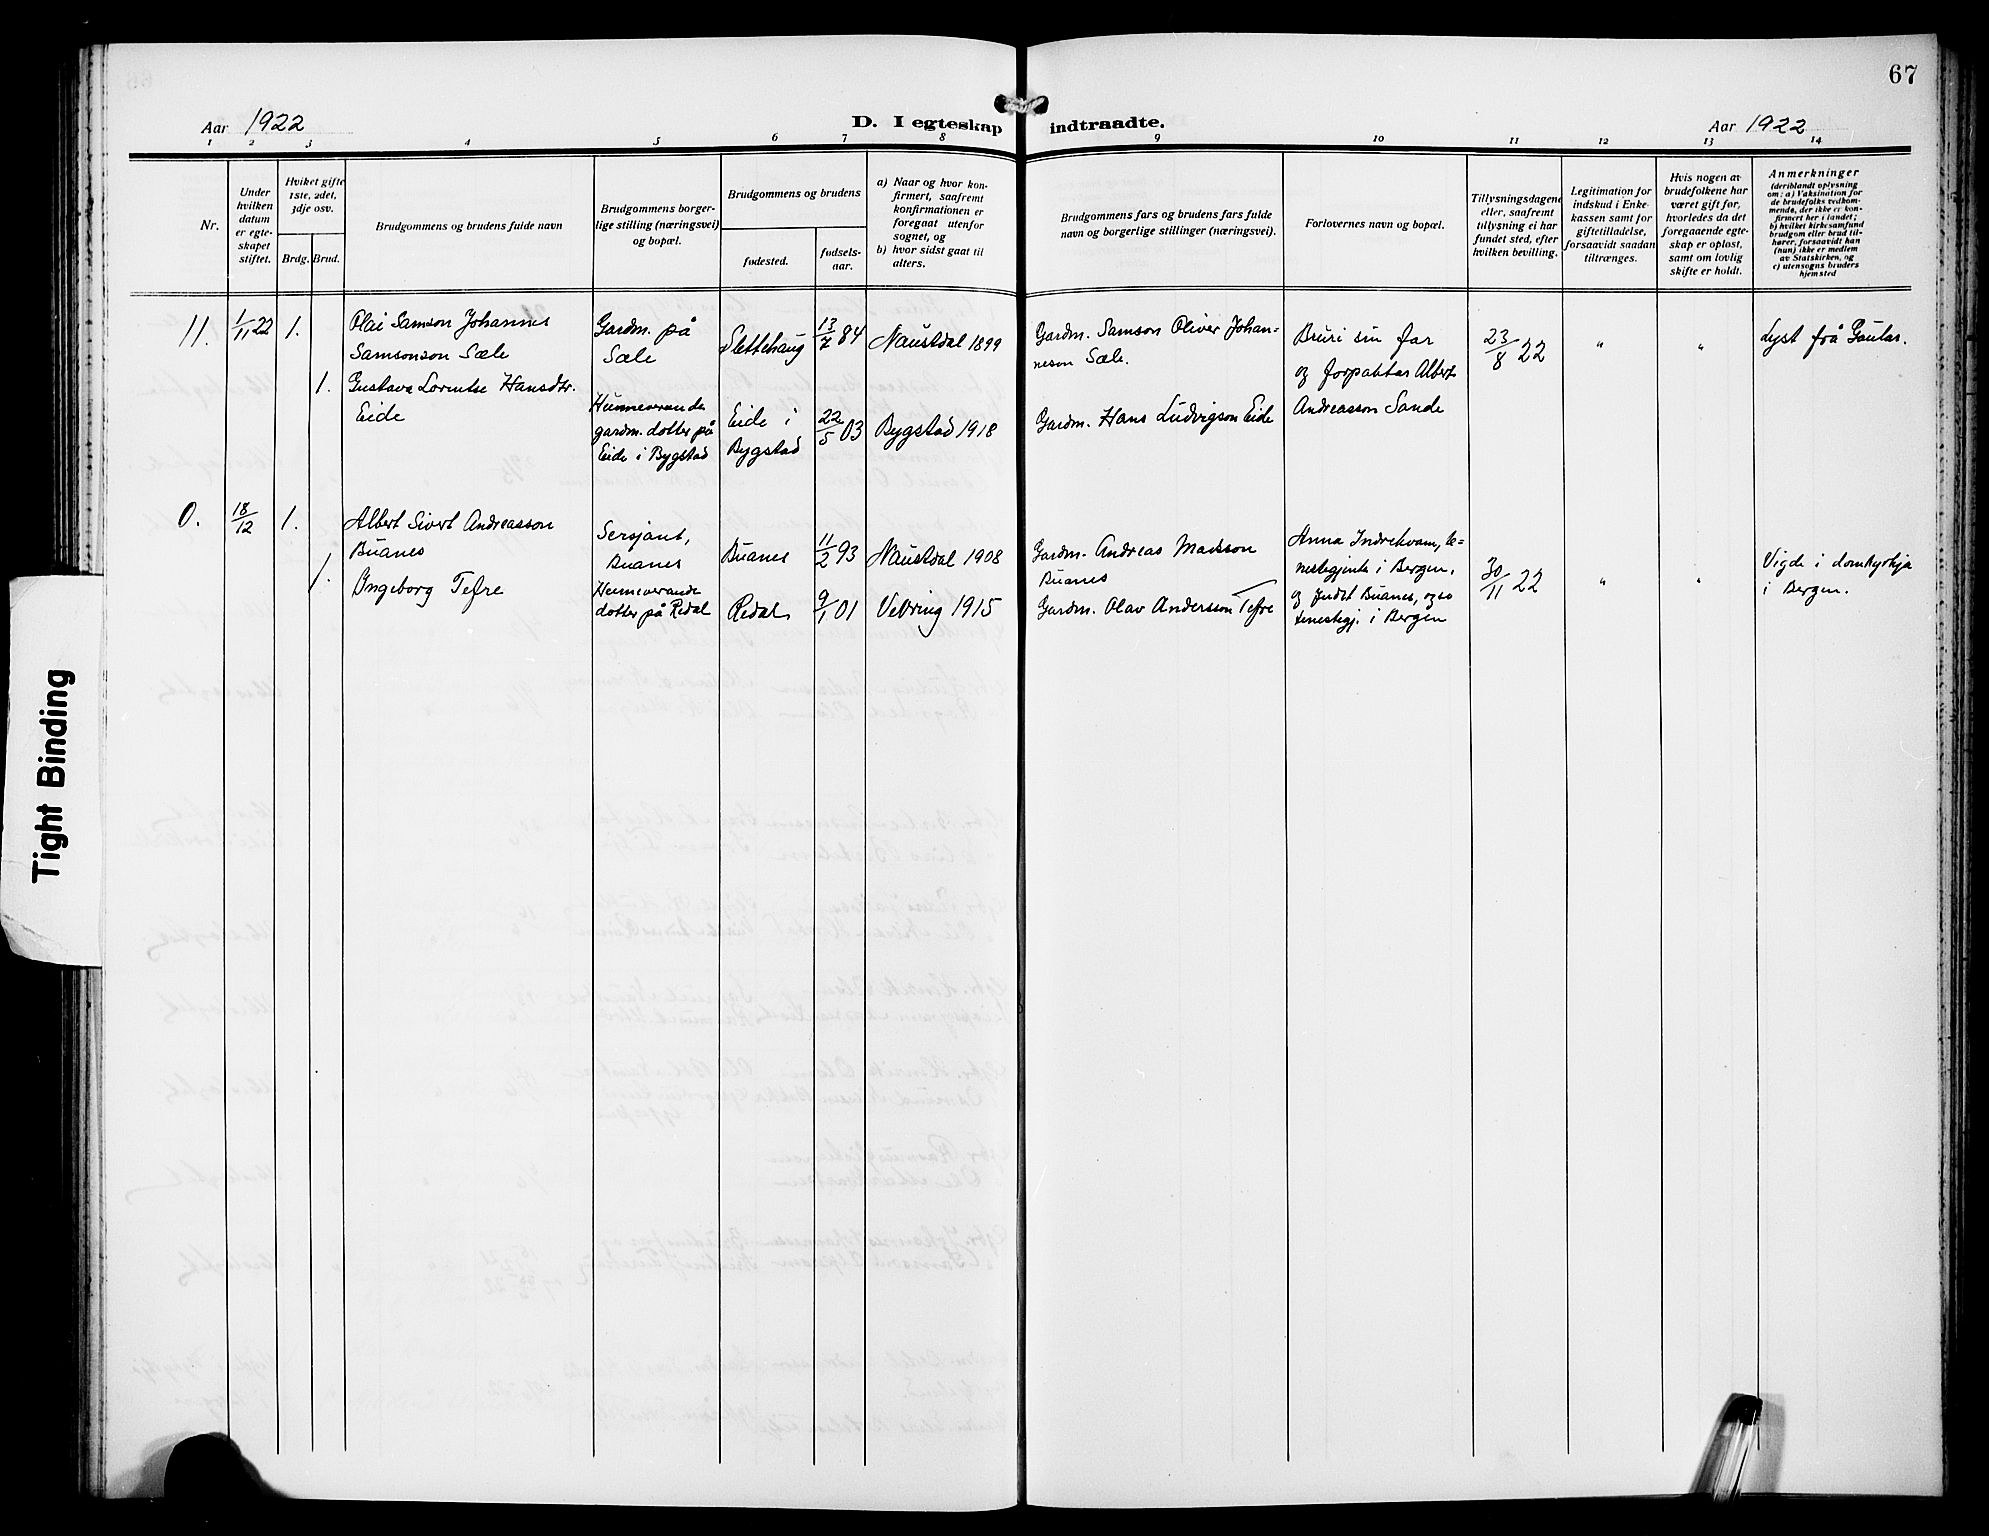 67
Aar 1922
D. I egteskap indtraadte.
Aar 1922
1 2 3 4 5 6 7 8 9 10 11 12 13 14
Nr.
Under
hvilken
datum
er egte-
skapet
stiftet.
Hviket gifte
1ste, 2det,
3dje osv.
Brdg. Brud.
Brudgommens og brudens fulde navn
Brudgommens borger-
lige stilling (næringsvei)
og bopæl.
Brudgommens og brudens
fødested.
fødsels-
aar.
a) Naar og hvor kon-
firmert, saafremt
konfirmationen er
foregaat utenfor
sognet, og
b) hvor sidst gaat til
alters.
Brudgommens fars og brudens fars fulde
navn og borgerlige stillinger (næringsvei).
Forlovernes navn og bopæl.
Tillysningsdagene
eller, saafremt
tillysning ei har
fundet sted, efter
hvilken bevilling.
Legitimation for
indskud i Enke-
kassen samt for
giftetilladelse,
forsaavidt saadan
tiltrænges.
Hvis nogen av
brudefolkene har
været gift før,
hvorledes da det
foregaaende egte-
skap er opløst,
samt om lovlig
skifte er holdt.
Anmerkninger
(deriblandt oplysning
om: a) Vaksination for
de brudefolks vedkom-
mende, der ikke er kon-
firmert her i landet;
b) hvilket kirkesamfund
brudgom eller brud til-
hører, forsaavidt han
(hun) ikke er medlem
av Statskirken, og
c) utensogns bruders
hjemsted
11.
1/11 22
1.
Olai Samson Johannes
Samsonson Sæle
Gardm. på
Sæle
Slettehaug
13/7 84
Naustdal 1899
Gardm. Samson Oliver Johan-
neson Sæle.
Bruri sin far
og forpaktar Albert
Andreasson Sande
23/8 22
"
"
Lyst frå Gaular.
1.
Gustava Lorentse Hansdtr.
Eide
Heimeverande
gardm. dotter på
Eide i Bygstad
Eide i
Bygstad
22/5 03
Bygstad 1918
Gardm. Hans Ludvigson Eide
0.
18/12
1.
Albert Sivert Andreasson
Buanes
Sersjant,
Buanes
Buanes
11/2 93
Naustdal 1908
Gardm. Andreas Madsson
Buanes
Anna Indrekvam, te-
nestegjente i Bergen.
og Jendet Buanes, ogso
tenestegj. i Bergen
30/11 22
"
"
Vigde i domkyrkja
i Bergen.
1.
Ingeborg Tefre
Heimeverande
dotter på Redal
Redal
9/1 01
Vevring 1915
Gardm. Olav Andersson Tefre
Tight Binding